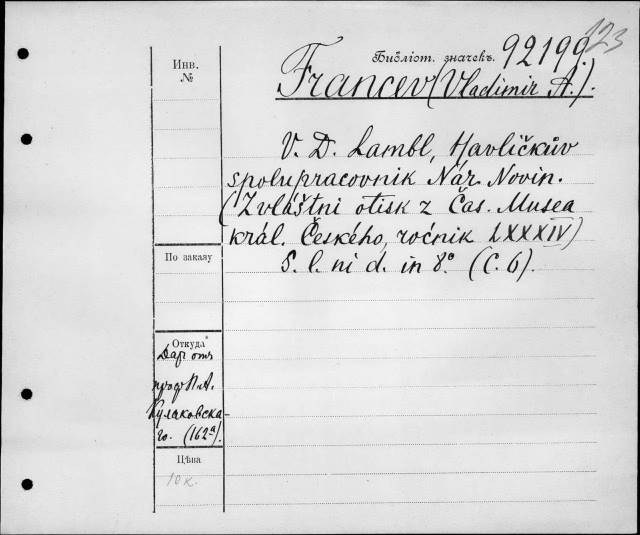 123
Библіот. значекъ. 92199.
Инв.
№
Francev (Vladimir A.).
V. D. Lambl, Havlíčkův
spolupracovnik Nár. Novin.
(Zvláštni otisk z Čas. Musea
král. Českého, ročnik LXXXIV)
S. l. ni d. in 8º. (C. 6).
По заказу
Откуда
Даръ отъ
проф. П. А.
Кулаковска-
го. (162ª).
Цѣна
10 к.